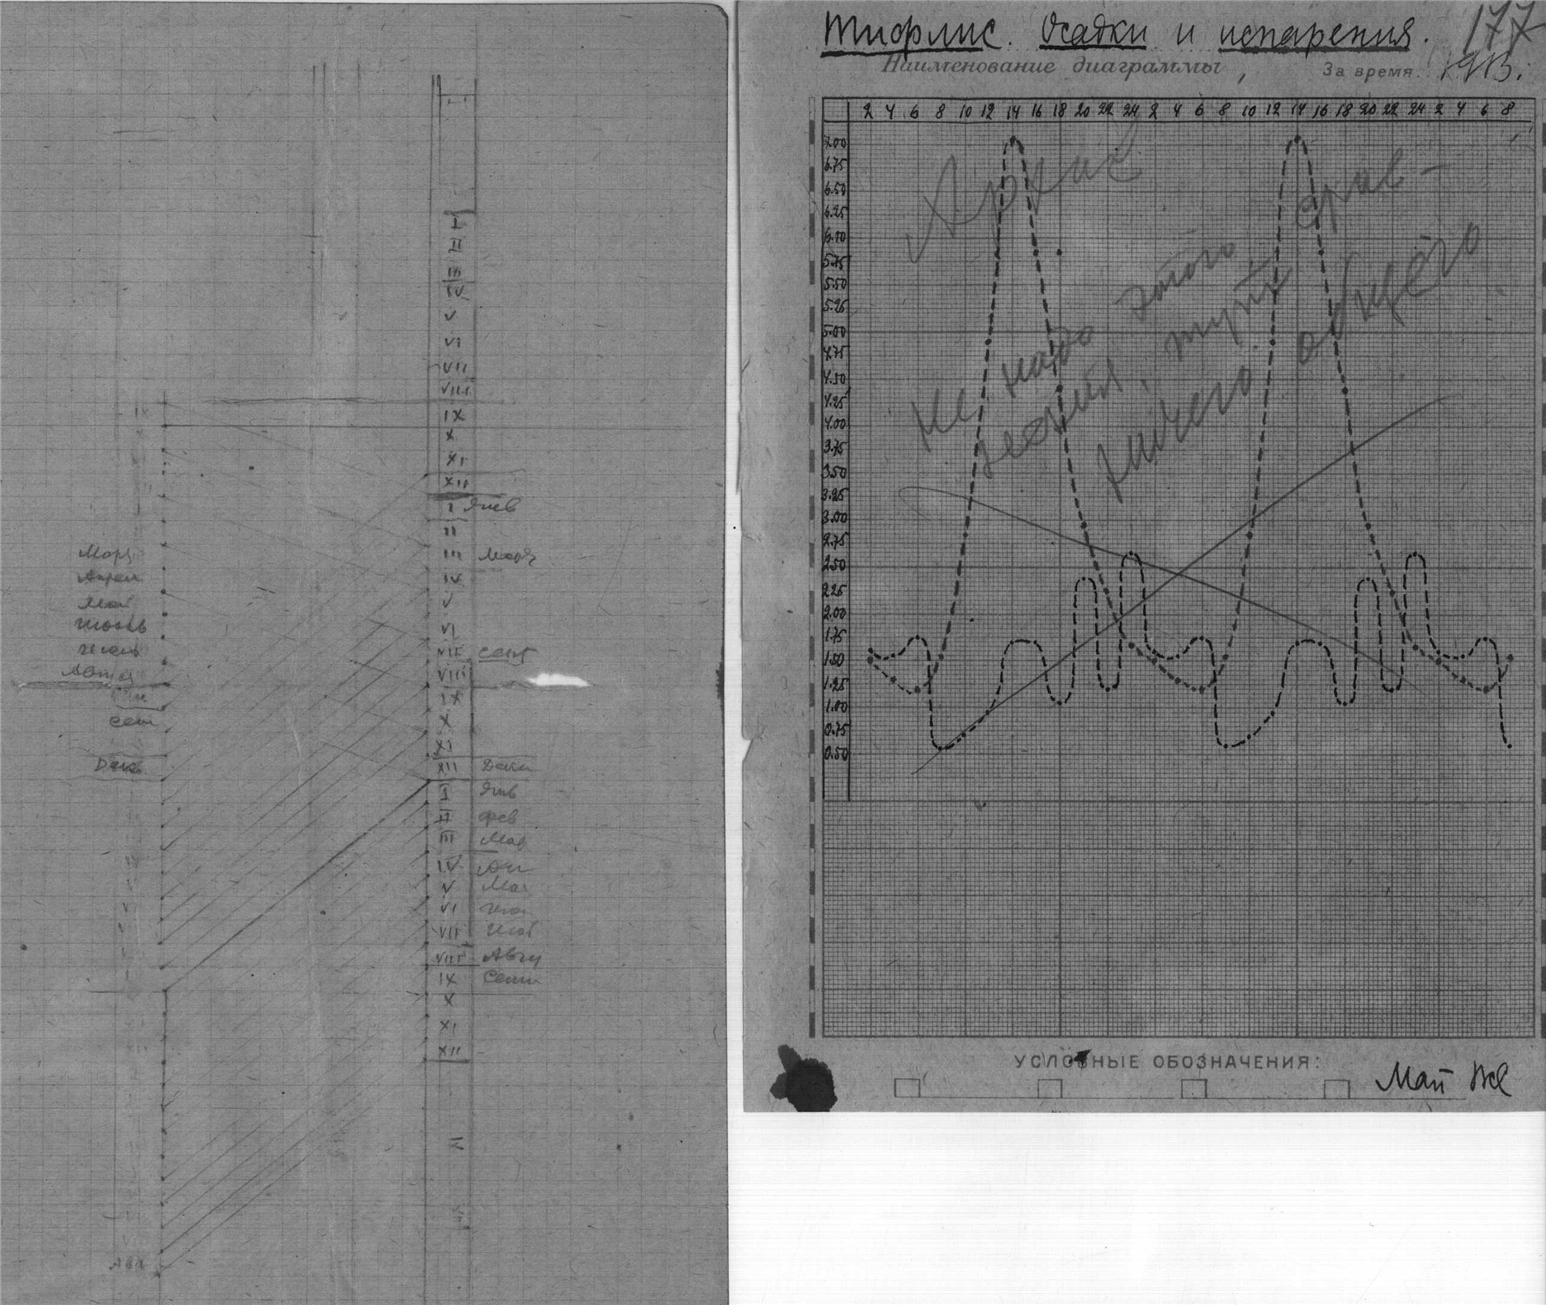 I
II
III
IV
V
VI
VII
VIII
IX
X
XI
XII
I Янв
II
III Март
IV
V
VI
VII Сент
VIII
IX
X
XI
XII Дек
I Янв
II фев
III Мар
IV
V Май
VI Июн
VII Июл
VIII Авгу
IX Сент
X
XI
XII
Март
Апрел
Май
Июнь
Июль
Сент
Дек
Тифлис. Осадки и испарения. 177
Наименование диаграммы, За время 1913.
2 4 6 8 10 12 14 16 18 20 22 24 2 4 6 8 10 12 14 16 18 20 22 24 2 4 6 8
7.00
6.75
6.50
6.25
6.00
5.75
5.50
5.25
5.00
4.75
4.50
4.25
4.00
3.75
3.50
3.25
3.00
2.75
2.50
2.25
2.00
1.75
1.50
1.25
1.00
0.75
0.50
Не надо этого срав-
нения, тут
ничего общего
УСЛОВНЫЕ ОБОЗНАЧЕНИЯ:
Май